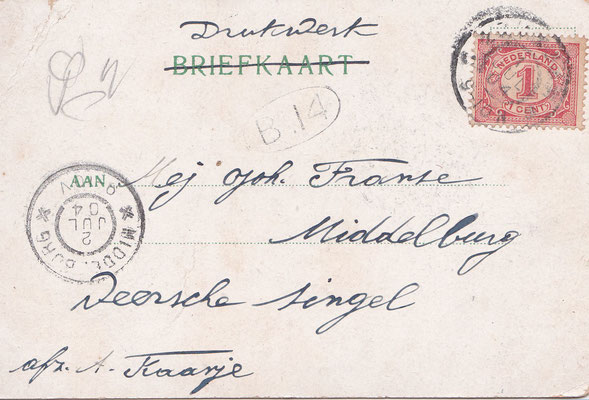 Drukwerk
BRIEFKAART
NEDERLAND
1
1 CENT
B.14
AAN
Mej Joh. Franse
Middelburg
Veersche singel
afz. A. Kaarje
MIDDELBURG
2
JUL
04